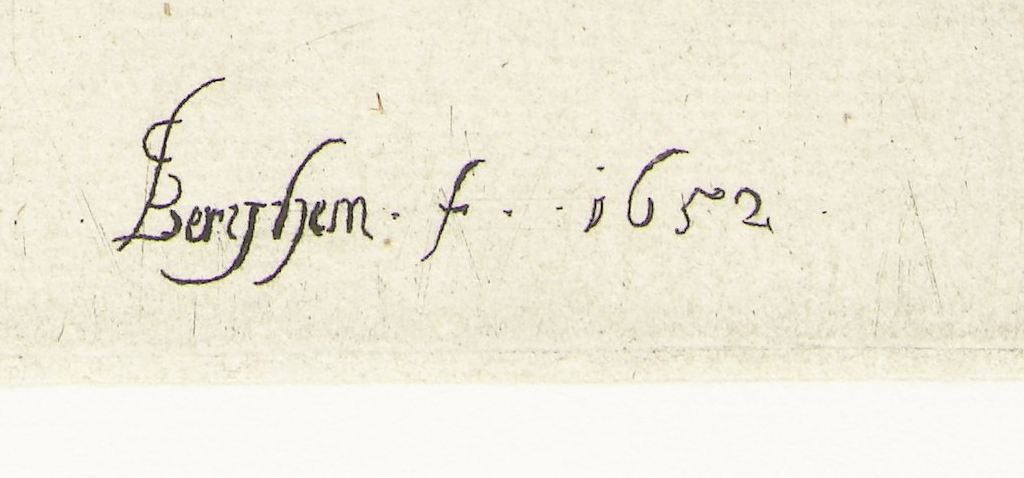 Berghem. f. 1652